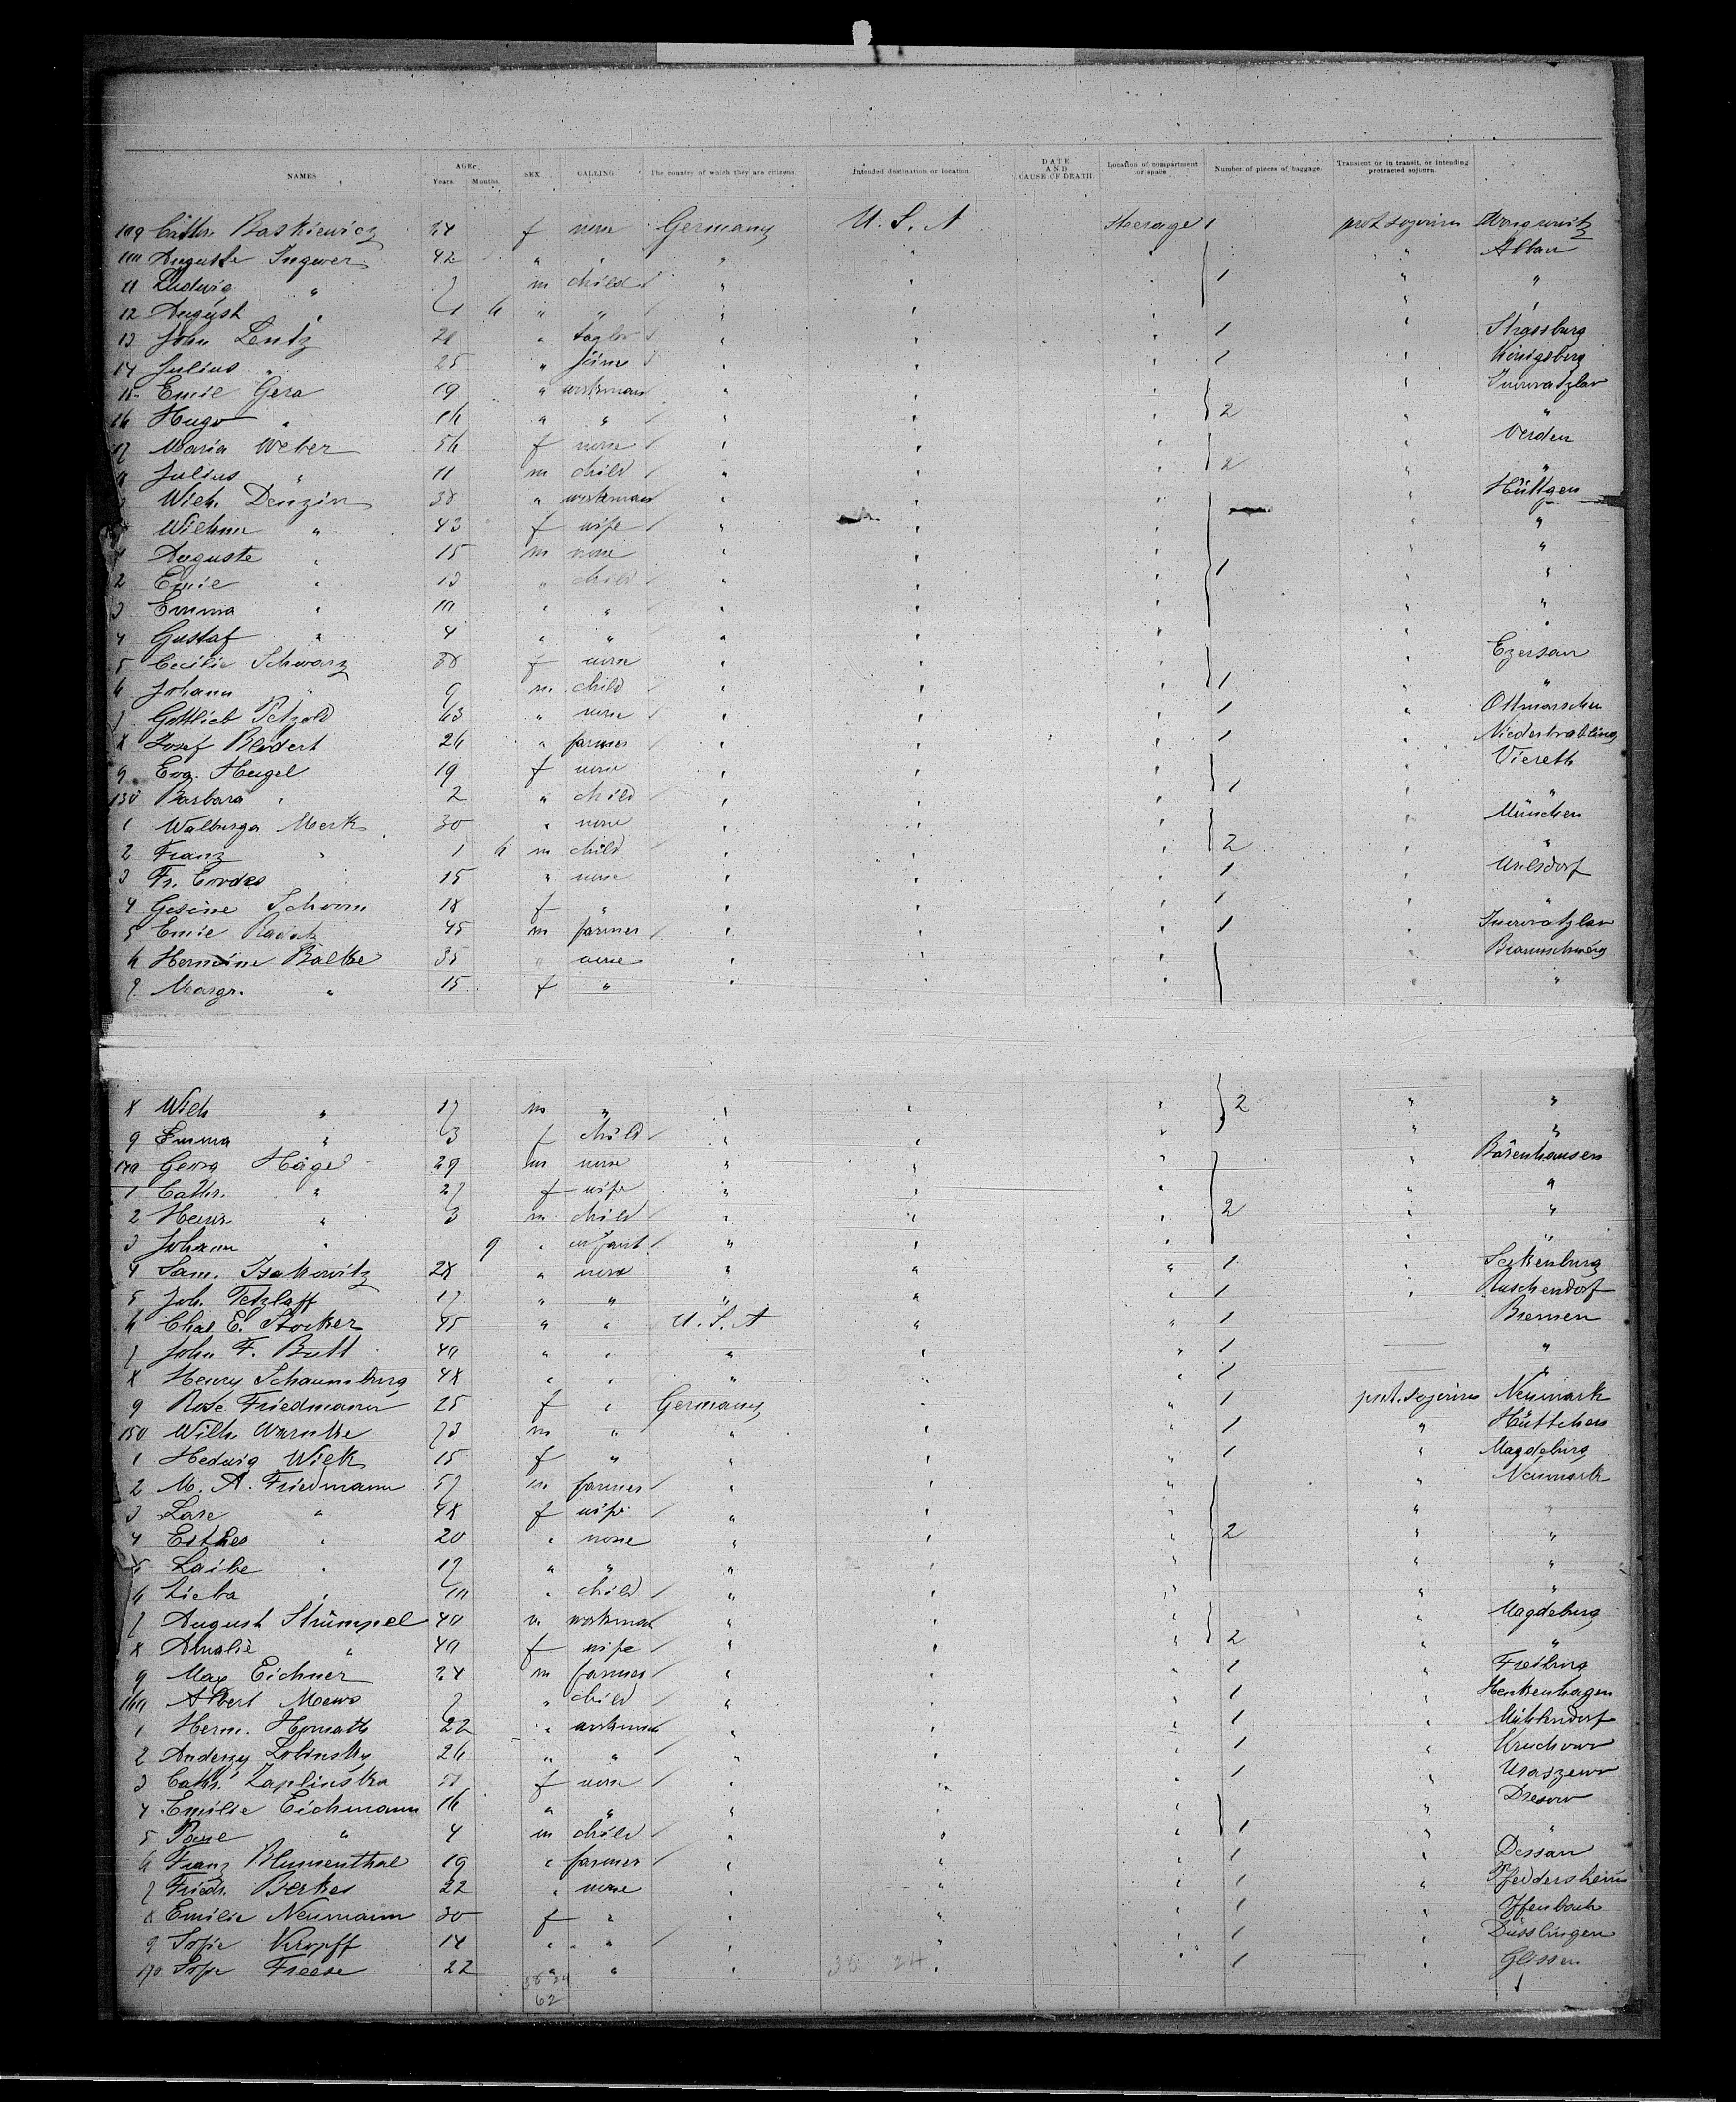 NAMES AGE. Years. Months. SEX. CALLING The country of which they are citizens. Intended destination or location DATE AND CAUSE OF DEATH. Location of compartment or space Number of pieces of baggage. Transient or in transit, or intending protracted sojourn.
109 Cath. Baskiewicz 24 f none Germany U. S. A Steerage 1 prot sojourn Wongrowitz
110 Auguste Ingwer 42 " " " " " Altbau
11 Ludwig " 7 m child " " " 1 " "
12 August " 1 6 " " " " " " "
13 John Lentz 20 " taylor " " " 1 " Strassburg
14 Julius " 25 " " " " 1 " Königsberg
15 Emil Gera 19 " workman " " " " Inowratzlav
16 Hugo " 16 " " " " " 2 " "
17 Maria Weber 56 f none " " " " Verden
Julius " 11 m child " " " 2 " "
Wilh. Denzin 38 " workman " " " " Hüttgen
Wilhmn " 43 f wife " " " " "
Auguste " 15 m none " " " " "
2 Emil " 13 " child " " " 1 " "
3 Emma " 10 " " " " " " "
4 Gustaf " 4 " " " " " " "
5 Cecilie Schwarz 38 f none " " " " Egersau
6 Johann " 9 m child " " " 1 " "
7 Gottlieb Petzold 63 " none " " " 1 " Ottmarschen
8 Josef Blodert 26 " farmer " " " 1 "
9 Eva Heugel 19 f none " " " " Viereth
130 Barbara " 2 " child " " " 1 " "
1 Walburga Merk 30 " none " " " " München
2 Franz " 1 6 m child " " " 2 " "
3 Fr. Cordes 15 " none " " " 1 "
4 Gesine Schoorn 18 f " " " " 1 " "
5 Emil Radatz 45 m farmer " " " 1 " Inowratzlav
6 Hermine Balke 35 " none " " " " Braunschweig
7 Margr. " 15 f " " " " " "
8 Wilh " 17 m " " " " 2 " "
9 Emma " 3 f child " " " " "
140 Georg Hägel 29 m none " " " " Bärenhausen
1 Cathr. " 27 f wife " " " " "
2 Heinr. " 3 m child " " " 2 " "
3 Johann " 9 " infant " " " " "
4 Sam. Isakowitz 28 " none " " " 1 " Seckenburg
5 Joh. Tetzlaff 17 " " " " " 1 " Ruschendorf
6 Chas E. Stocker 45 " " U. S. A " " 1 Bremen
7 John F. Butt 40 " " " " " 1 "
8 Henry Schaumburg 48 " " " " " 1 "
9 Rose Friedmann 25 f " Germany " " 1 prot. sojourn Neumark
150 Wilh. Warnke 73 m " " " " 1 " Hüttchen
1 Hedwig Wiek 15 f " " " " 1 " Magdeburg
2 M. A. Friedmann 57 m farmer " " " " Neumark
3 Lare " 48 f wife " " " " "
4 Esther " 20 " none " " " 2 " "
5 Laibe " 17 " " " " " " "
6 Lieba " 10 " child " " " " "
7 August Strümpel 40 m workman " " " " Magdeburg
8 Amalie " 40 f wife " " " 2 " "
9 Max Eichner 24 m farmer " " " 1 " Freiburg
160 Albert Mews 7 " child " " " 1 " Henkenhagen
1 Herm. Hornath 22 " workman " " " 1 " Mühlendorf
2 Anderzy Lobinsky 26 " " " " " 1 " Kruchowo
3 Cath. Zaplinska f none " " " 1 " Usaszewo
4 Emilie Eichmann 16 " " " " " " Dresow
5 Paul " 4 m child " " " 1 " "
6 Franz Blumenthal 19 " farmer " " " 1 " Dessau
7 Friedr. Berkes 22 " none " " " 1 " Pfeddersheim
8 Emilie Neumann 30 f " " " " 1 " Offenbach
9 Sofie Kropff 14 " " " " " 1 " Dusslingen
170 Sofie Freese 22 " " " " " 1 " Glissen
38 24
62
38 24